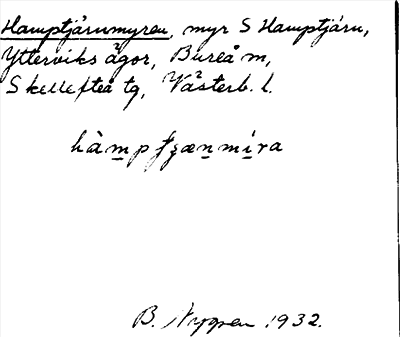 Hamptjärnmyren, myr S Hamptjärn,
Ytterviks ägor, Bureå m,
Skellefteå tg, Västerb. l.
B. Nygren 1932.